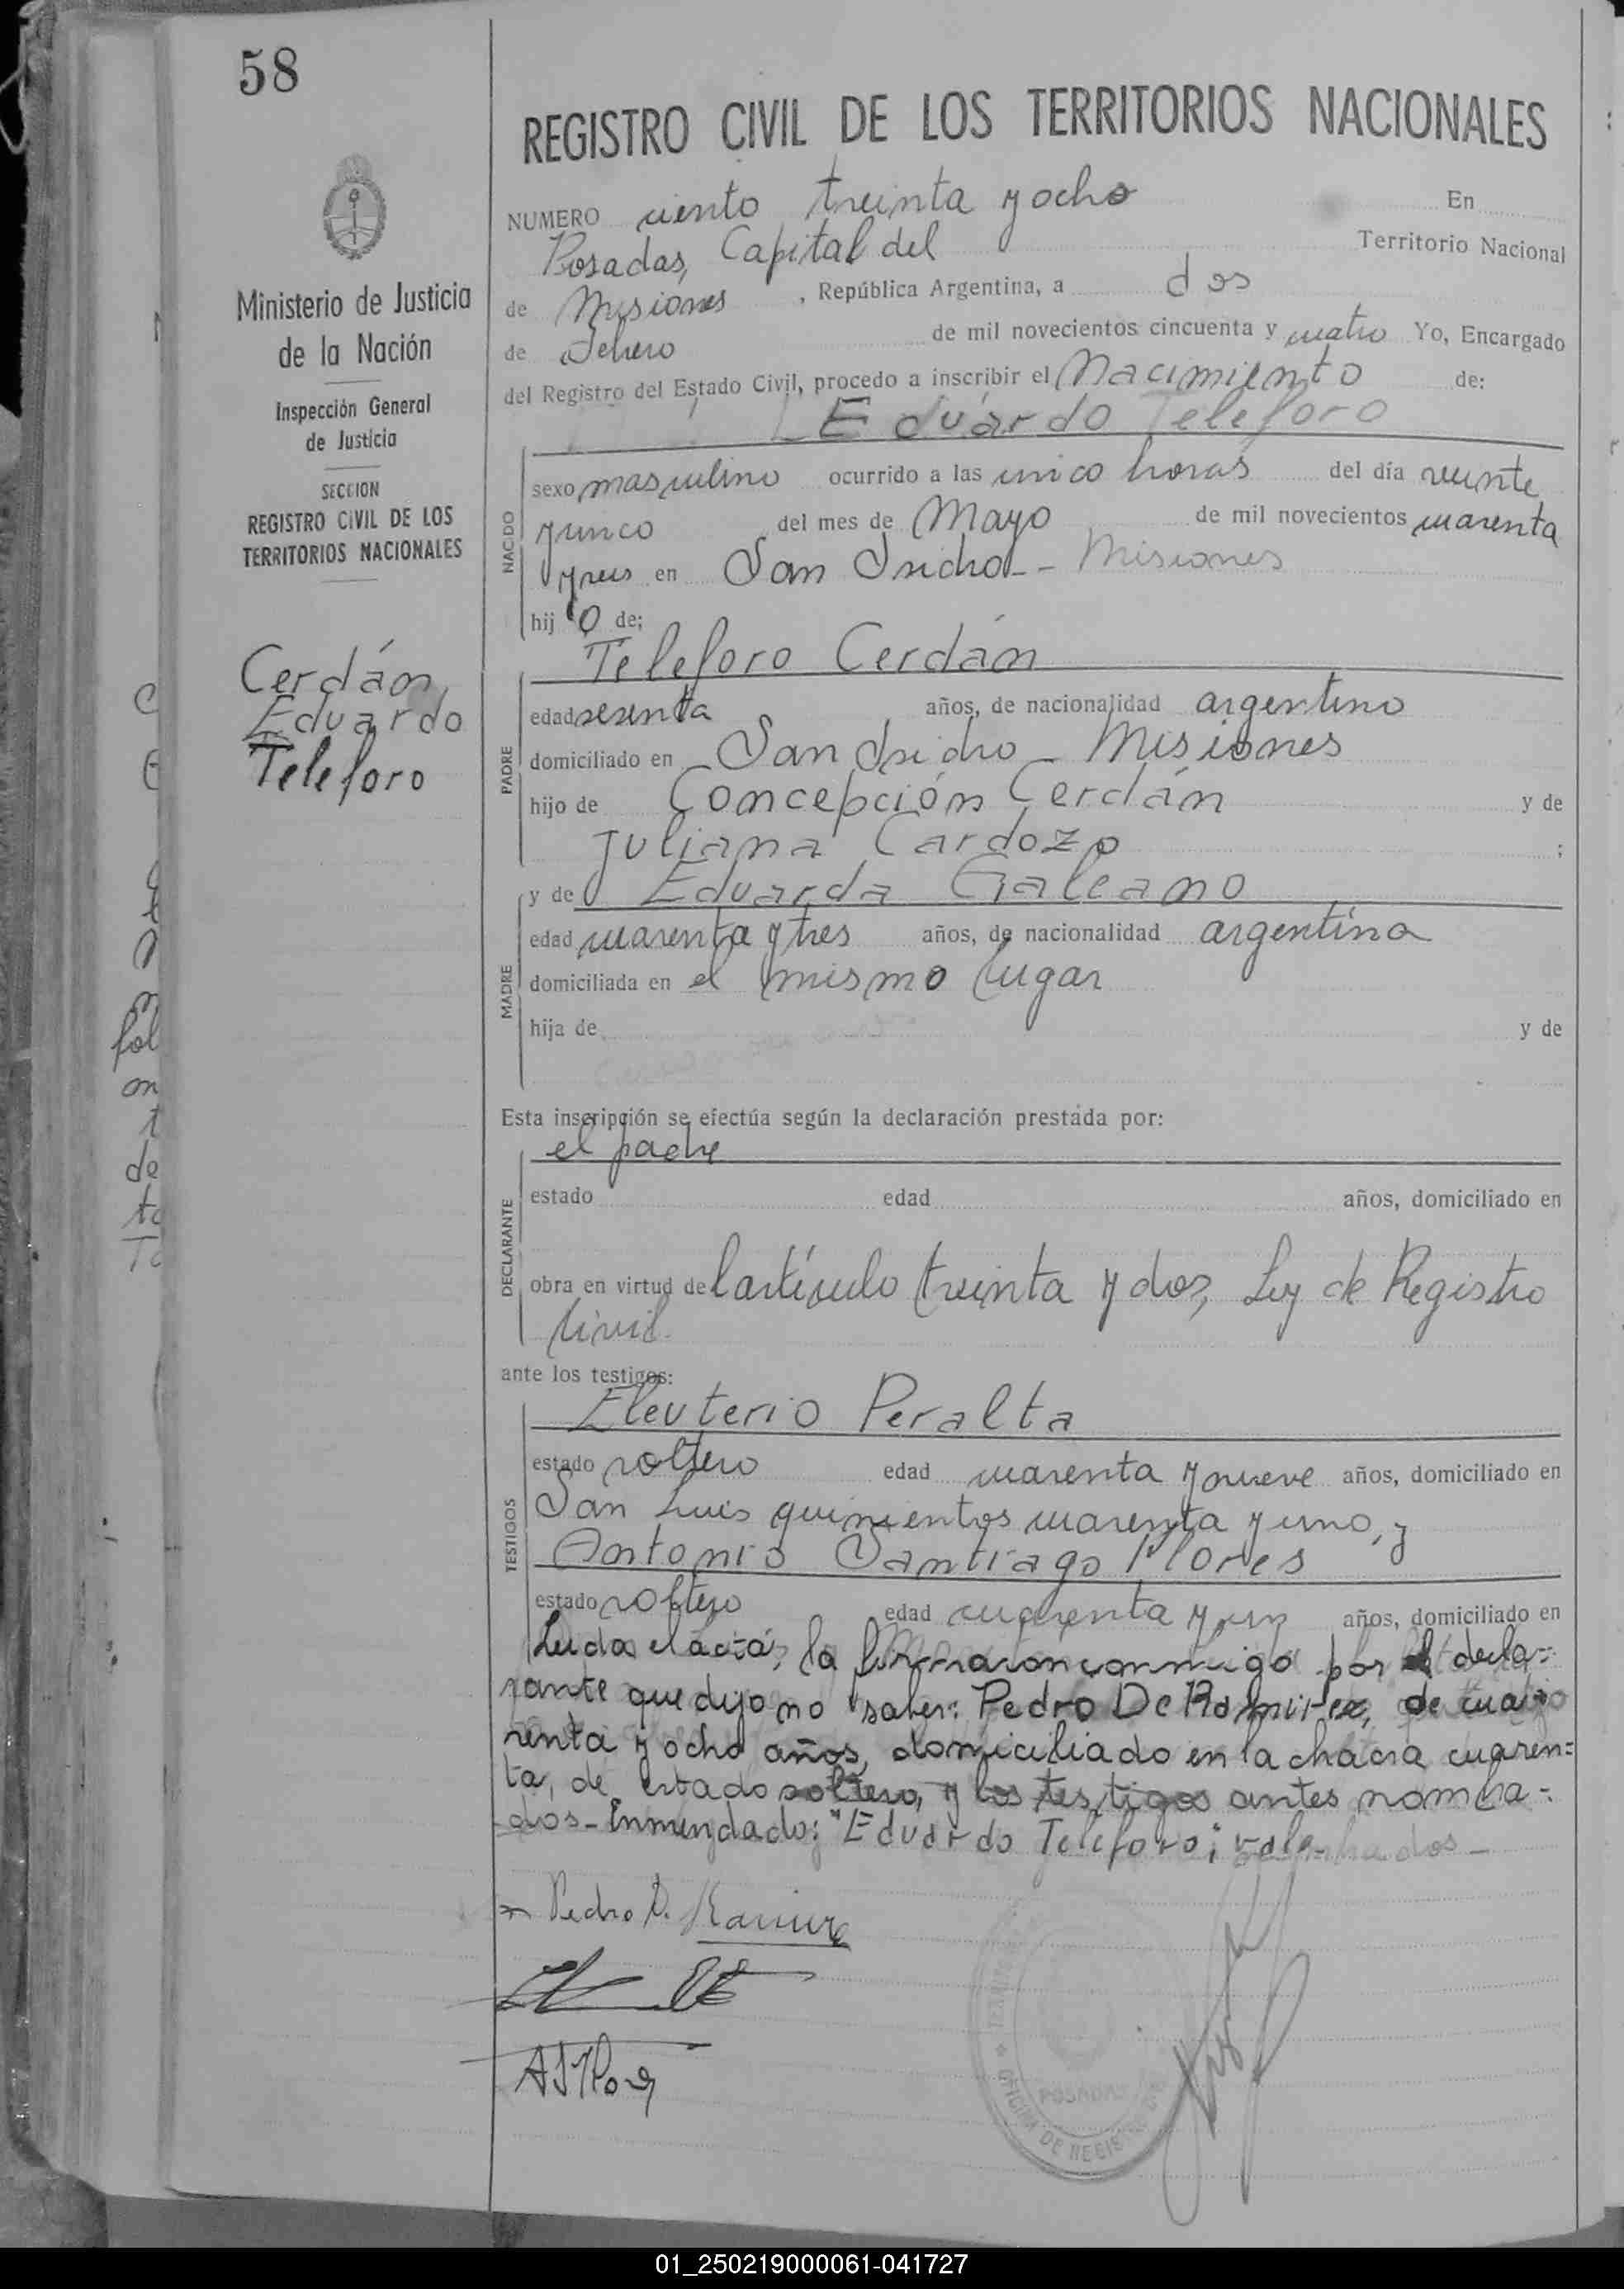 58
REGISTRO CIVIL DE LOS TERRITORIOS NACIONALES
Ministerio de Justicia
de la Nación
Inspección General
de Justicia
SECCION
REGISTRO CIVIL DE LOS
TERRITORIOS NACIONALES
Cerdán
Eduardo
Teleforo
NUMERO ciento treinta y ocho En
Posadas, Capital del Territorio Nacional
de Misiones, República Argentina, a dos
de Febrero de mil novecientos cincuenta y cuatro Yo, Encargado
del Registro del Estado Civil, procedo a inscribir el Nacimiento de:
Eduardo Teleforo
NACIDO
sexo masculino ocurrido a las cinco horas del día veinte
y cinco del mes de Mayo de mil novecientos cuarenta
y seis en San Isidro - Misiones
hijo de:
Teleforo Cerdán
PADRE
edad sesenta años, de nacionalidad argentino
domiciliado en San Isidro - Misiones
hijo de Concepción Cerdán y de
Juliana Cardozo ;
y de Eduarda Galeano
MADRE
edad cuarenta y tres años, de nacionalidad argentina
domiciliada en el mismo lugar
hija de y de
Esta inscripción se efectúa según la declaración prestada por:
el padre
DECLARANTE
estado edad años, domiciliado en
obra en virtud del artículo treinta y dos, Ley de Registro
Civil.
ante los testigos:
Eleuterio Peralta
TESTIGOS
estado soltero edad cuarenta y nueve años, domiciliado en
San Luis quinientos cuarenta y uno, y
Antonio Santiago Flores
estado soltero edad cuarenta y un años, domiciliado en
Leida el acta, la firmaron conmigo por el decla=
rante que dijo no saber: Pedro De Ramirez, de cua=
renta y ocho años, domiciliado en la chacra cuaren=
ta, de estado soltero, y los testigos antes nombra=
dos - Enmendado: "Eduardo Teleforo"; vale
Pedro D. Ramirez
POSADAS
OFICINA DE REGISTRO
01_250219000061-041727